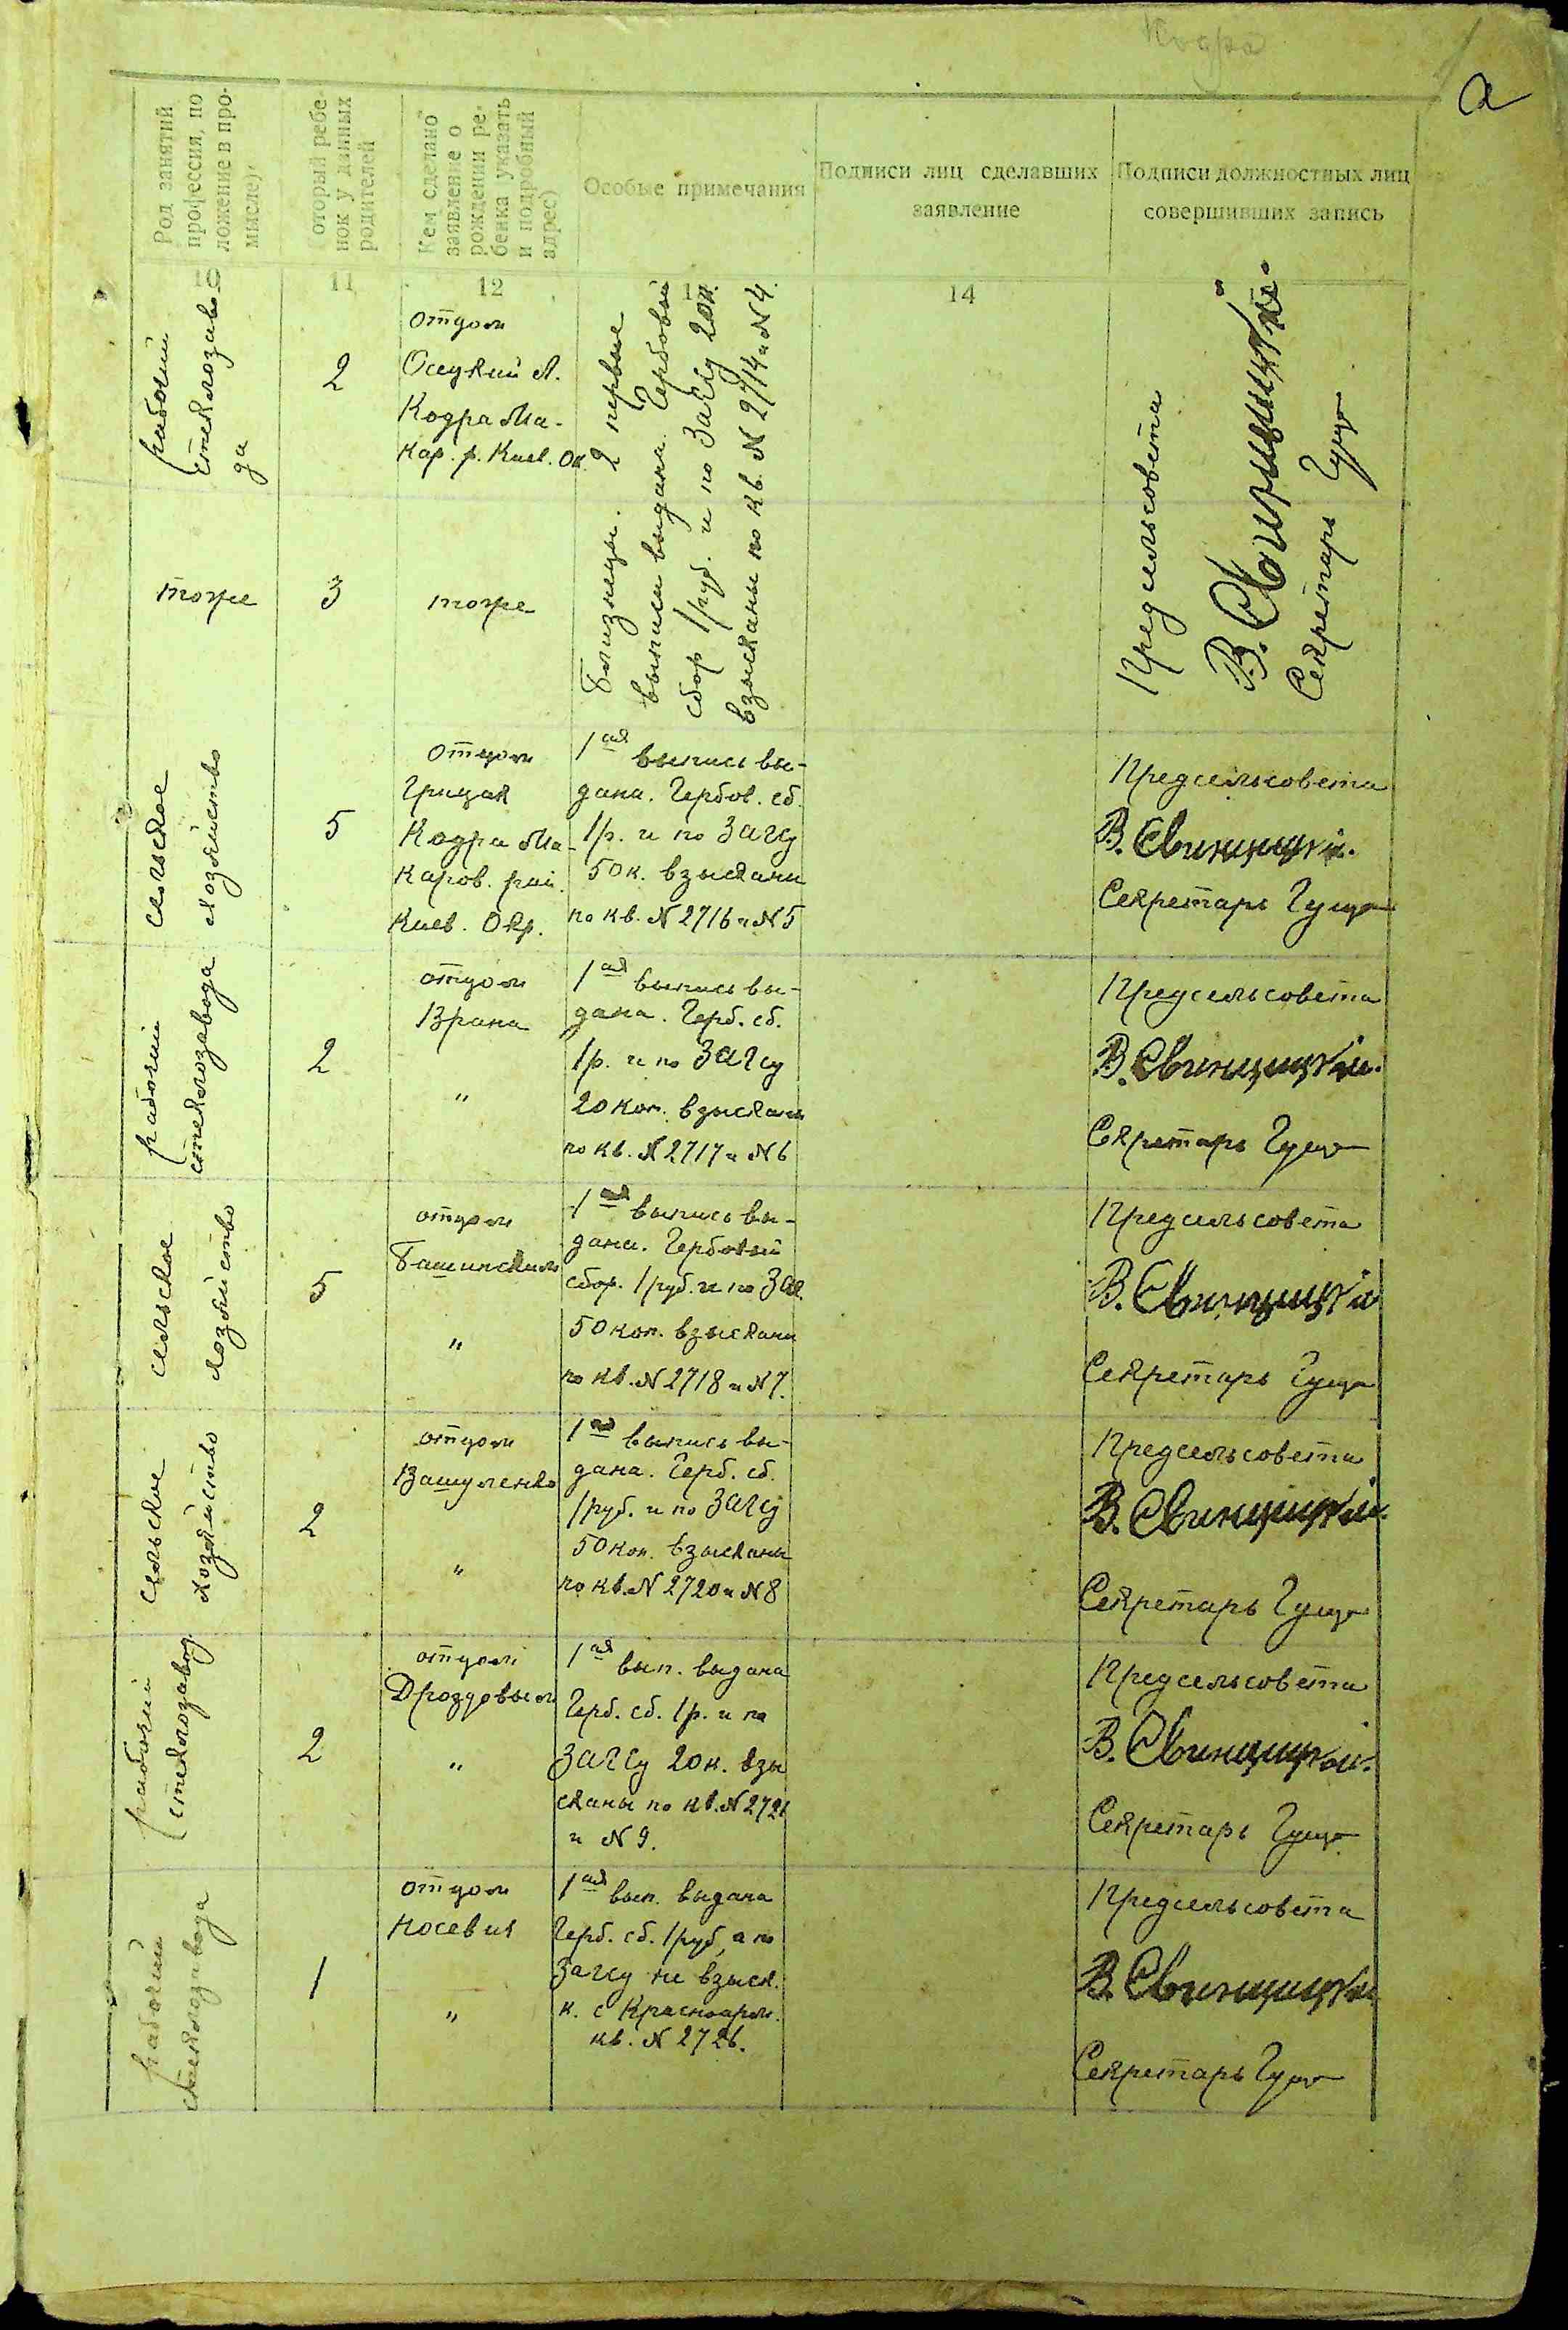 Кодра
а
Род занятий
профессия, по
ложение в про-
мысле)
Который ребе-
нок у данных
родителей
Кем сделано
заявление о
рождении ре-
бенка указать
и подробный
адрес)
Особые примечания
Подписи лиц сделавших
заявление
Подписи должностных лиц
совершивших запись
10
11
12
14
рабочий
стеклозаво-
да
2
отцом
Осецкий А.
Кодра Ма-
кар. р. Киев. Ок.
Близнецы. 2 первые
выписи выдана. Гербовый
сбор 1 руб. и по ЗАГСу 20к.
взысканы по кв. N 2714 и N 4.
Предсельсовета
В. Свиницкий.
Секретарь Гуща
тоже
3
тоже
сельское
хозяйство
5
отцом
Грицая
Кодра Ма-
каров. рай.
Киев. Окр.
1ая выпись вы-
дана. Гербов. сб.
1р. и по ЗАГСу
50к. взысканы
по кв. N 2716 и N 5
Предсельсовета
В. Свиницкий.
Секретарь Гуща
рабочий
стеклозавода
2
отцом
Врана
"
1ая выпись вы-
дана. Герб. сб.
1р. и по ЗАГСу
20 коп. взысканы
по кв. N 2717 и N 6
Предсельсовета
В. Свиницкий.
Секретарь Гуща
сельское
хозяйство
5
отцом
Башинским
"
1ая выпись вы-
дана. Гербовый
сбор. 1 руб. и по ЗАГ.
50 коп. взысканы
по кв. N 2718 и N 7.
Предсельсовета
В. Свиницкий
Секретарь Гуща
сельское
хозяйство
2
отцом
Ващуленко
"
1ая выпись вы-
дана. Герб. сб.
1 руб. и по ЗАГСу
50 коп. взысканы
по кв. N 2720 и N 8
Предсельсовета
В. Свиницкий.
Секретарь Гуща
рабочий
стеклозавод.
2
отцом
Дроздовым
"
1ая вып. выдана
Герб. сб. 1р. и по
ЗАГСу 20к. взы
сканы по кв. N 2721
и N 9.
Предсельсовета
В. Свиницкий.
Секретарь Гуща
рабочий
стеклозавода
1
отцом
Носевич
"
1ая вып. выдана
Герб. сб. 1 руб, а по
Загсу не взыск.
к. с Красноарм.
кв. N 2726.
Предсельсовета
В. Свиницкий
Секретарь Гуща